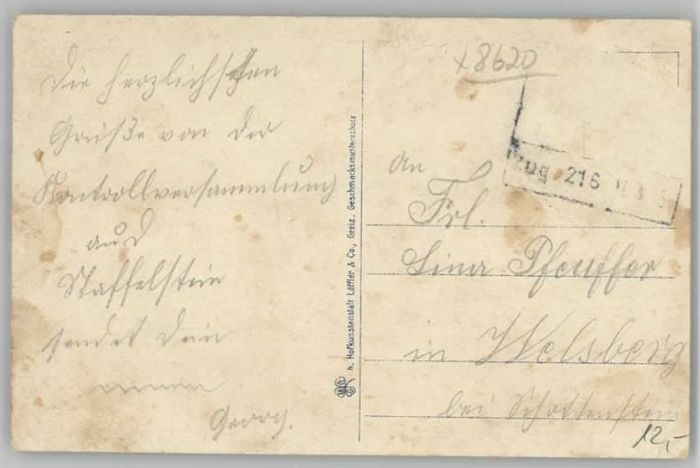 Die herzlichsten
Grüße von der
Kontrollversammlung
aus
Staffelstein
sendet Dein
Georg.
h. Hofkunstanstalt Löffler & Co., Greiz. Geschmacksmusterschutz
x8620
Zug 216
An
Frl.
Lina Pfeuffer
in Welsberg
bei Schottenstein
12,-